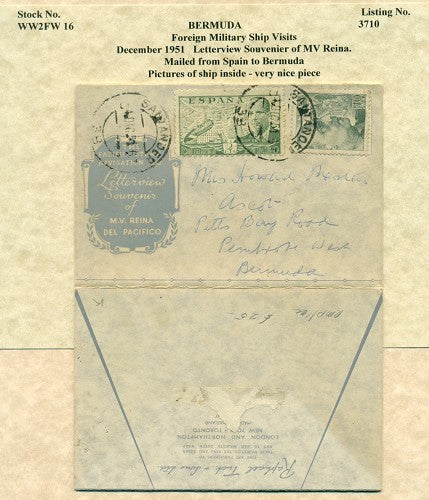 Stock No.
WW2FW 16
BERMUDA
Listing No.
3710
Foreign Military Ship Visits
December 1951 Letterview Souvenier of MV Reina.
Mailed from Spain to Bermuda
Pictures of ship inside - very nice piece
SANTANDER
ESPAÑA
SANTANDER
NAVIGATION
Letterview
Souvenir
of
M.V. REINA
DEL PACIFICO
Mrs Howard
"Ascot"
Pitts Bay Road
Pembroke West
Bermuda
K
£20
Raphael Tuck & Sons Ltd
LONDON AND NORTHAMPTON
NEW YORK TORONTO